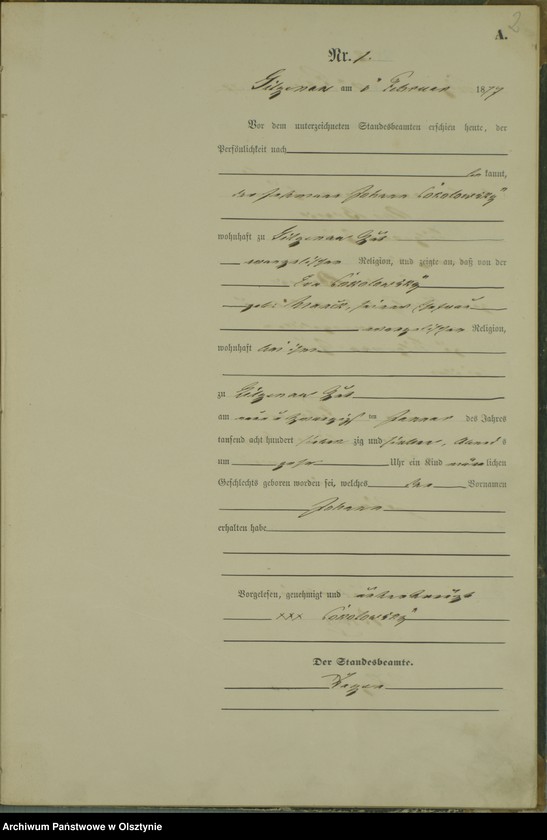 2
A.
Nr. 1.
Gilgenau am 6 Februar 1877
Vor dem unterzeichneten Standesbeamten erschien heute, der
Persönlichkeit nach
be kannt,
der Johann Cokolowsky
wohnhaft zu Gilgenau Gut
evangelischer Religion, und zeigte an, daß von der
Cokolowsky
geb: seiner Ehefrau
evangelischer Religion,
wohnhaft bei ihm
zu Gilgenau Gut
am Januar des Jahres
tausend acht hundert sieben zig und sieben, Abend s
um Uhr ein Kind männ lichen
Geschlechts geboren worden sei, welches den Vornamen
Johann
erhalten habe
Vorgelesen, genehmigt und
xxx Cokolowsky
Der Standesbeamte.
Archiwum Państwowe w Olsztynie